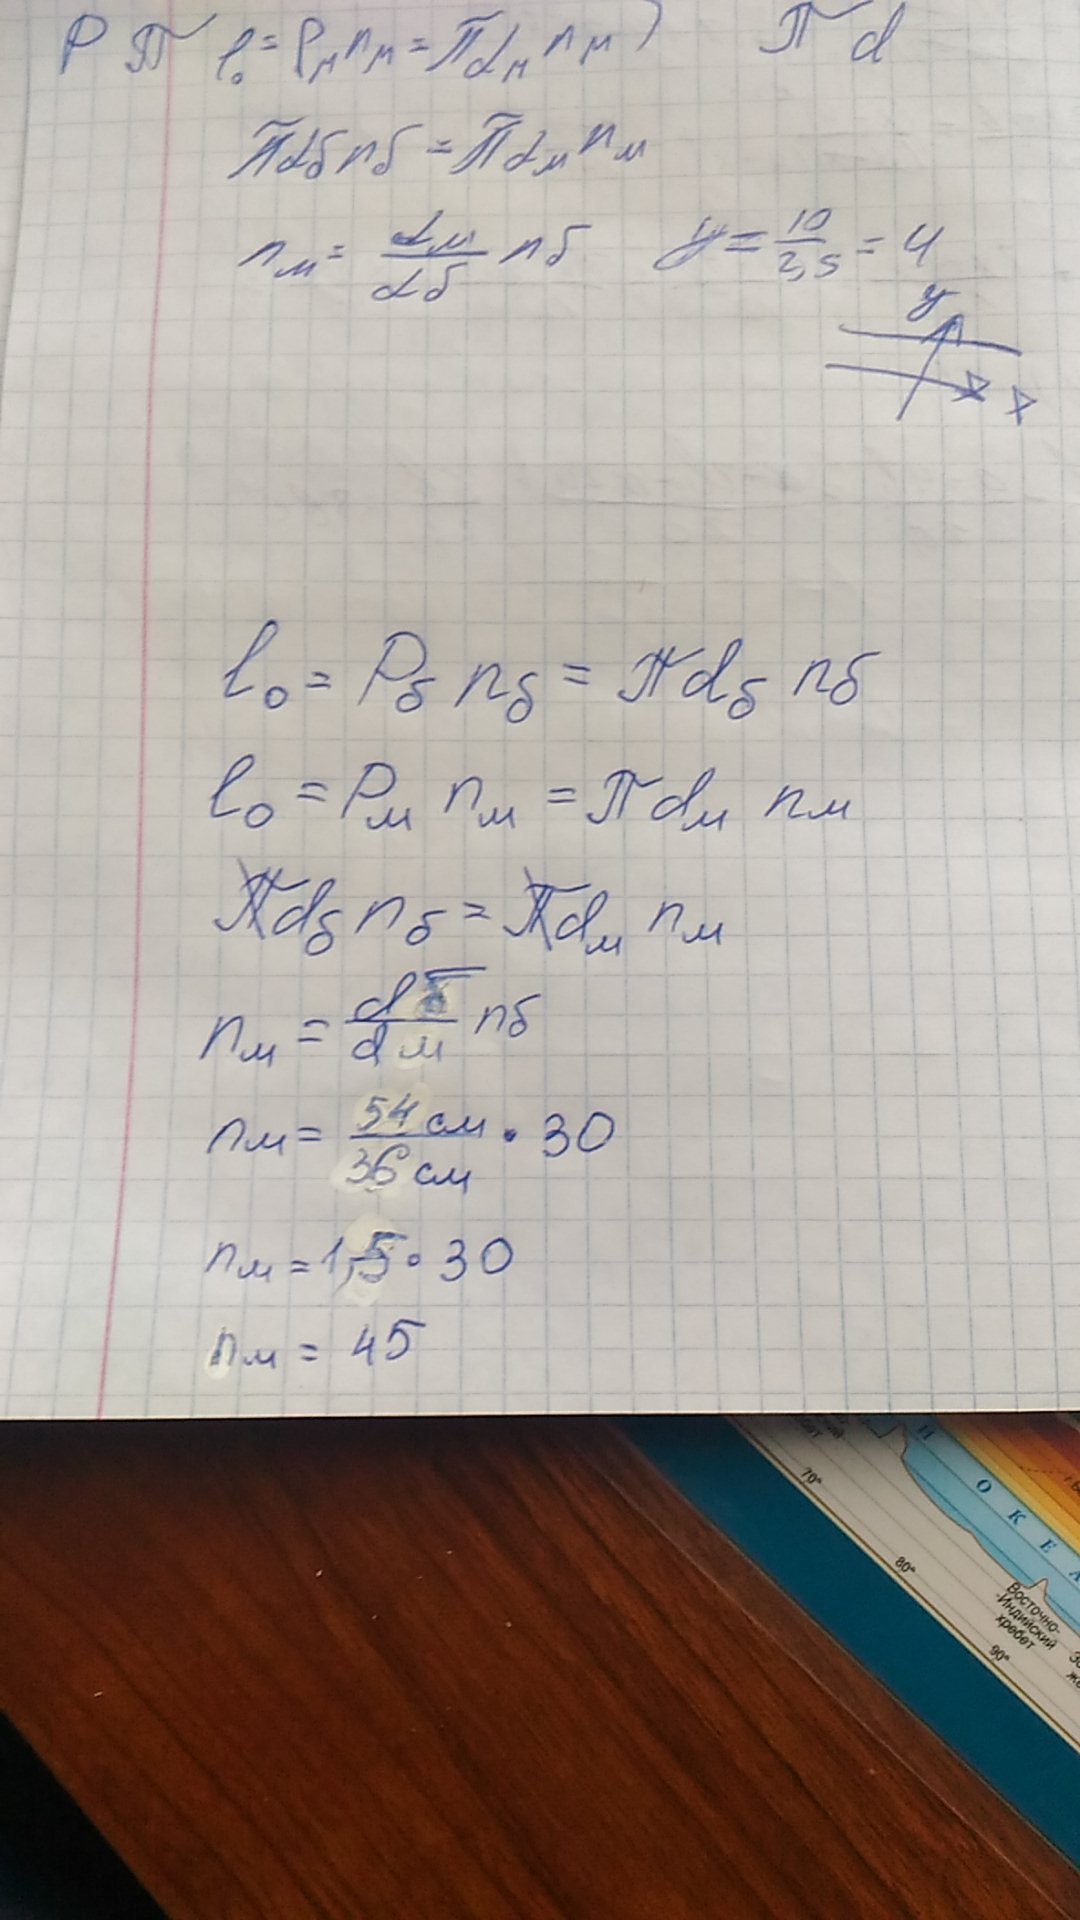 P π l₀ = Pмnм = πdмnм) πd
πdбnб = πdмnм
nм = dм/dб nб y = 10/2,5 = 4
y
x
l₀ = Pб nб = πdб nб
l₀ = Pм nм = πdм nм
πdб nб = πdм nм
nм = dб/dм nб
nм = 54 см/36 см · 30
nм = 1,5 · 30
nм = 45
70°
И
О К Е
80°
Восточно-
-Индийский
хребет
90°